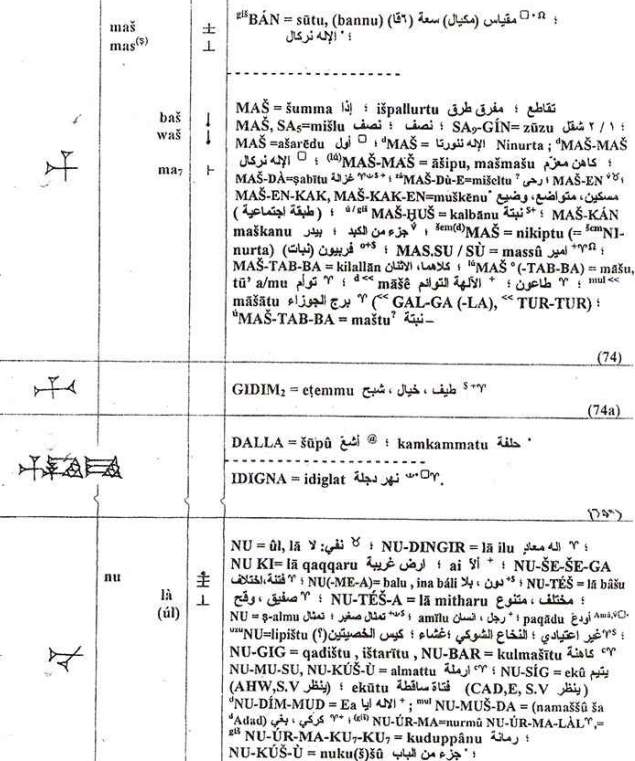 maš
mas⁽ṣ⁾
ᵍⁱˢBÁN = sūtu, (bannu) مقياس (مكيال) سعة (٦قا) ؛
الإله نركال ؛
baš
waš
ma₇
MAŠ = šumma إذا ؛ išpallurtu تقاطع ؛ مفرق طرق
MAŠ, SA₉=mišlu نصف ؛ نصف ؛ SA₉-GÍN= zūzu ١ / ٢ شقل ؛
MAŠ =ašarēdu أول ؛ ᵈMAŠ = الإله ننورتا Ninurta ; ᵈMAŠ-MAŠ
الإله نركال ؛ ⁽ˡᵘ⁾MAŠ-MAŠ = āšipu, mašmašu كاهن معزّم ؛
MAŠ-DÀ=ṣabītu غزالة ؛ MAŠ-Dù-E=mišeltu ? رحى ؛ MAŠ-EN
MAŠ-EN-KAK, MAŠ-KAK-EN=muškēnu مسكين، متواضع، وضيع
( طبقة اجتماعية ) ؛ MAŠ-ḪUŠ = kalbānu نبتة ؛ MAŠ-KÁN
maškanu بيدر ؛ جزء من الكبد ؛ ˢᵉᵐ⁽ᵈ⁾MAŠ = nikiptu (= ˢᵉᵐNI-
nurta) فربيون (نبات) ؛ MAS.SU / SÙ = massû امير ؛
MAŠ-TAB-BA = kilallān كلاهما، الاثنان ؛ ˡᵘMAŠ (-TAB-BA) = māšu,
tū' a/mu توأم ؛ طاعون ؛ māšē الآلهة التوائم ؛ ᵐᵘˡ
māšātu برج الجوزاء (GAL-GA (-LA), TUR-TUR) ؛
ᵘMAŠ-TAB-BA = maštu? نبتة –
(74)
GIDIM₂ = eṭemmu طيف ، خيال ، شبح
(74a)
DALLA = šūpû أشعّ ؛ kamkammatu حلقة
IDIGNA = idiglat نهر دجلة
nu
là
(úl)
NU = ûl, lā نفي: لا ؛ NU-DINGIR = lā ilu اله معاد ؛
NU KI= lā qaqqaru ارض غريبة ؛ ai ألا ؛ NU-ŠE-ŠE-GA
فتنة،اختلاف NU(-ME-A)= balu , ina báli دون ، بلا ؛ NU-TÉŠ = lā bâšu
صفيق ، وقح ؛ NU-TÉŠ-A = lā mitharu مختلف ، متنوع ؛
NU = ṣ-almu تمثال ؛ تمثال صغير ؛ amīlu رجل ، انسان ؛ paqādu أودع
غير اعتيادي ؛ NU=lipištu كيس الخصيتين(؟) ؛ النخاع الشوكي ؛ غشاء
NU-GIG = qadištu , ištarītu , NU-BAR = kulmašītu كاهنة
NU-MU-SU, NU-KÚŠ-Ù = almattu ارملة ؛ NU-SÍG = ekû يتيم
(AHW,S.V ينظر) ؛ ekūtu فتاة ساقطة (CAD,E, S.V ينظر )
ᵈNU-DÍM-MUD = Ea الاله ايا ; ᵐᵘˡ NU-MUŠ-DA = (namaššû ša
ᵈAdad) كركي ، بغي ؛ NU-ÚR-MA=nurmû NU-ÚR-MA-LÀL ,=
ᵍⁱˢ NU-ÚR-MA-KU₇-KU₇ = kuduppânu رمانة ؛
NU-KÚŠ-Ù = nuku(š)šû جزء من الباب ؛